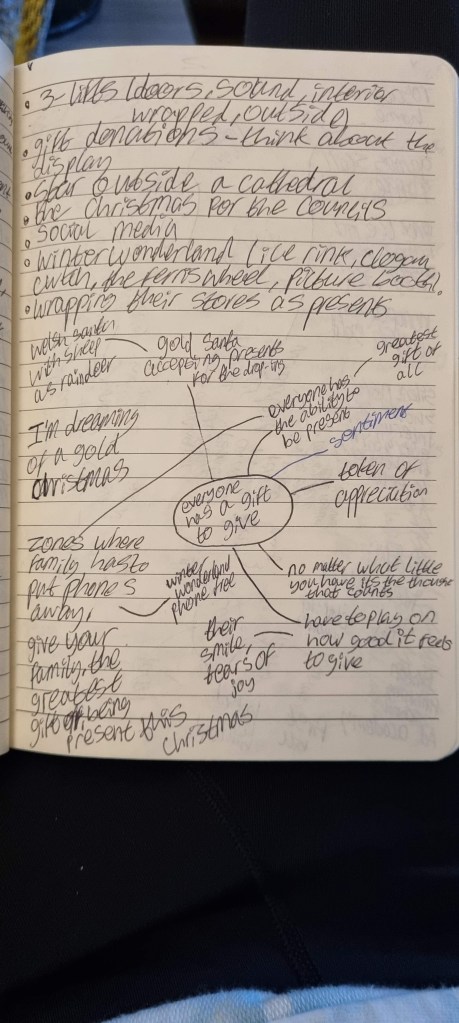 • 3-lifts (doors, sound, interior
wrapped, outside)
• gift donations - think about the
display
• star outside a cathedral
• the christmas for the councils
• social media
• winter wonderland (ice rink, clogau
cwtch, the ferris wheel, picture booth).
• wrapping their stores as presents
welsh santa
with sheep
as raindeer
gold santa
accepting presents
for the drop-ins
greatest
gift of
all
everyone has
the ability to
be present
I'm dreaming
of a gold
christmas
sentiment
everyone
has a gift
to give
token of
appreciation
zones where
family has to
put phones
away,
winter
wonderland
phone free
no matter what little
you have its the thought
that counts
give your
family, the
greatest
gift of being
present this
christmas
their
smile,
tears of
joy
have to play on
how good it feels
to give